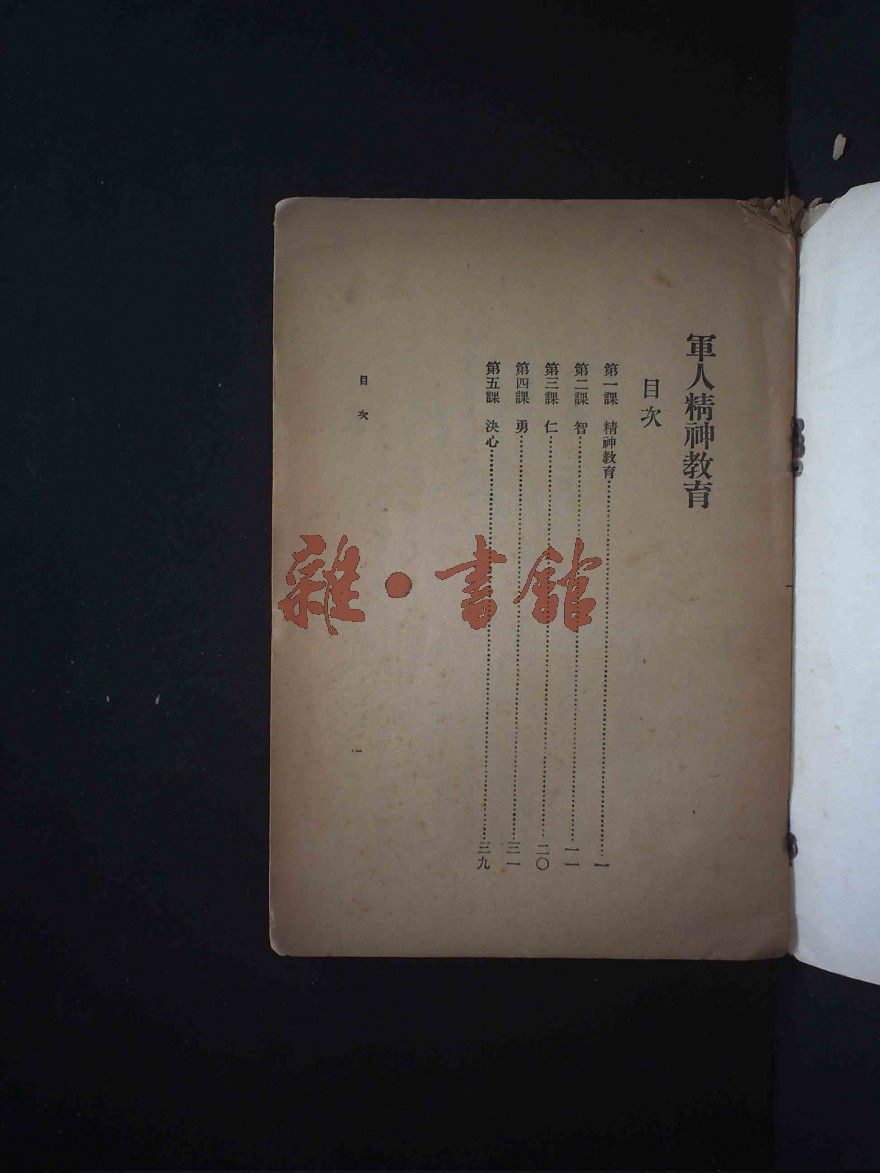 軍人精神教育
目次
第一課 精神教育…………一
第二課 智…………一一
第三課 仁…………二〇
第四課 勇…………三一
第五課 決心…………三九
目次
一
雜·書館